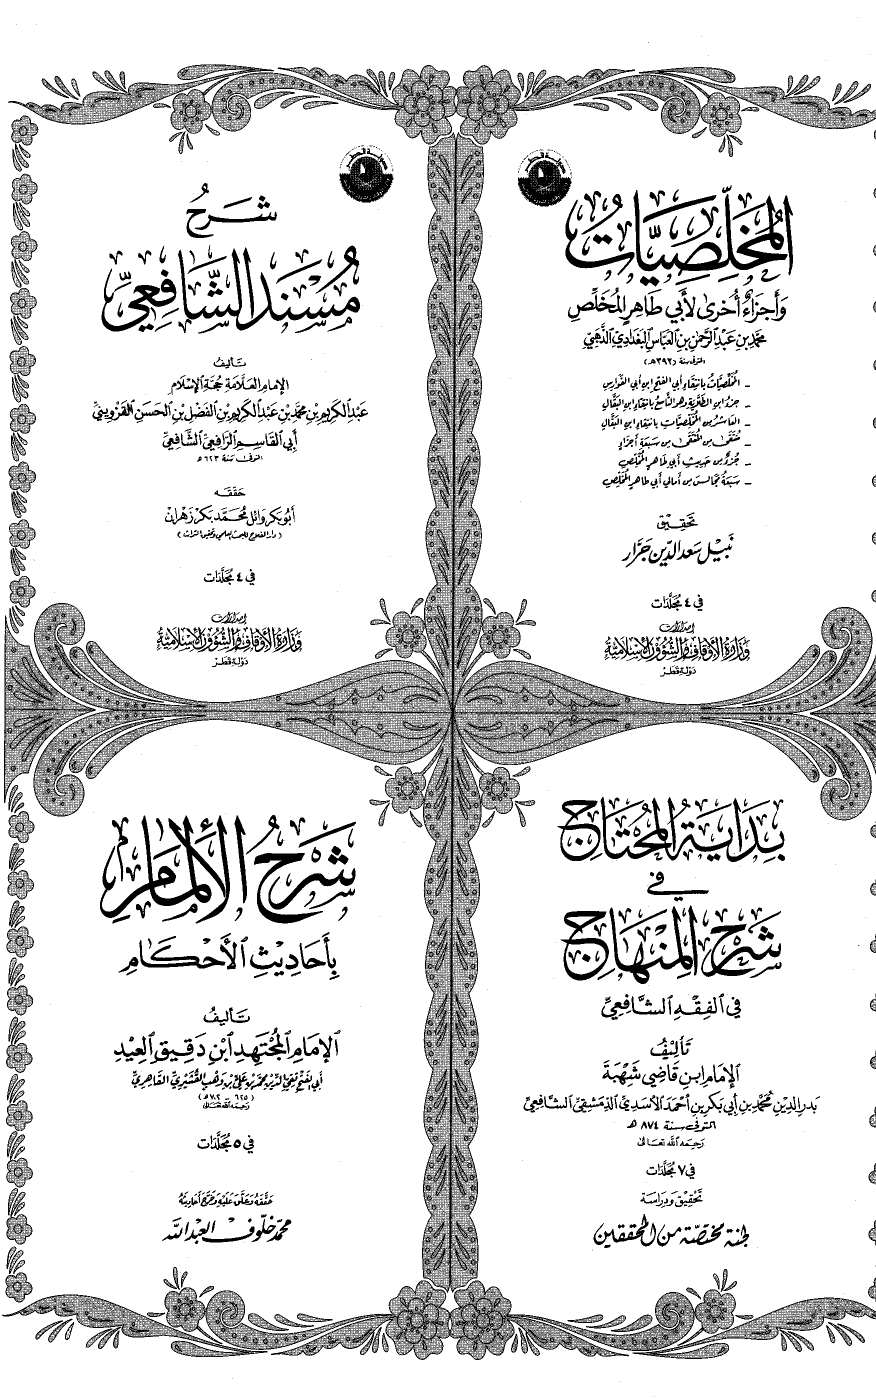 المُخَلِّصِيَّاتُ
وَأَجزَاءٌ أُخرَى لأَبِي طَاهِرٍ المُخَلِّصِ
محمَّد بن عَبد الرَّحمٰن بن العَبَّاس البَغدَادِيّ الذَّهَبِيّ
المتوفى سنة (٣٩٣هـ)
- المُخَلِّصِيَّاتُ بانتِقَاءِ أبي الفَتح ابن أبي الفَوَارِس
- جزءُ ابن الطَّلَّايَة وهو التَّاسِعُ بانتِقَاءِ ابن البَقَّالِ
- العَاشِرُ من المُخَلِّصِيَّاتِ بانتِقَاءِ ابن البَقَّالِ
- مُنتَقَى مِن المُنتَقَى مِن سَبعَةِ أَجزَاءٍ
- جُزءٌ مِن حَديثِ أَبي طَاهِرٍ المُخَلِّصِ
- سَبعَةُ مَجَالِسَ مِن أَمَالي أَبي طَاهِرٍ المُخَلِّصِ
تَحقِيق
نَبيل سَعد الدِّين جَرَّار
في ٤ مُجَلَّدَات
إصدارات
وزارة الأوقاف والشؤون الإسلامية
دَولة قطر
شَرحُ
مُسْنَدِ الشَّافِعِيِّ
تَأليفُ
الإمَامِ العَلَّامَةِ حُجَّةِ الإسْلَام
عَبدِ الكَرِيمِ بن مُحَمَّدِ بن عَبدِ الكَرِيمِ بن الفَضْلِ بن الحَسَنِ القَزْوِينيِّ
أَبي القَاسِمِ الرَّافِعِيِّ الشَّافِعِيِّ
المتوفى سَنة ٦٢٣ هـ
حَقَّقَه
أبُو بَكر وَائل مُحَمَّد بَكر زَهرَان
(دار الفلاح للبحث العلمي وتحقيق التراث)
في ٤ مُجَلَّدَات
إصدارات
وزارة الأوقاف والشؤون الإسلامية
دَولة قطر
بِدَايَةُ المُحْتَاج
في
شَرْحِ المِنْهَاج
في الفِقْهِ الشَّافِعِيِّ
تَأليفُ
الإمَام ابن قَاضِي شَهْبَة
بَدر الدِين مُحَمَّد بن أبي بَكر بن أحْمَد الأسَدِيّ الدِّمَشْقِيّ الشَّافِعِيّ
المتوفى سَنة ٨٧٤ هـ
رَحِمَه اللَّه تعَالى
في ٧ مُجَلَّدَات
تَحقِيق وَدرَاسَة
لجنة مختصّة من المحققين
شَرْحُ الإِلْمَام
بِأَحَادِيثِ الأَحْكَامِ
تَأليفُ
الإمَامِ المُجْتَهِدِ ابْنِ دَقِيقِ العِيْدِ
أبي الفَتحِ تَقِيِّ الدِّينِ مُحَمَّد بن عَلِيّ بن وَهْبٍ القُشَيْرِيّ القَاهِرِيّ
(٦٢٥ - ٧٠٢هـ)
رَحِمَهُ اللَّه تعَالى
في ٥ مُجَلَّدَات
حَقَّقَهُ وَعَلَّقَ عَلَيْهِ وَخَرَّجَ أحَادِيثَهُ
محمد خلوف العبد الله